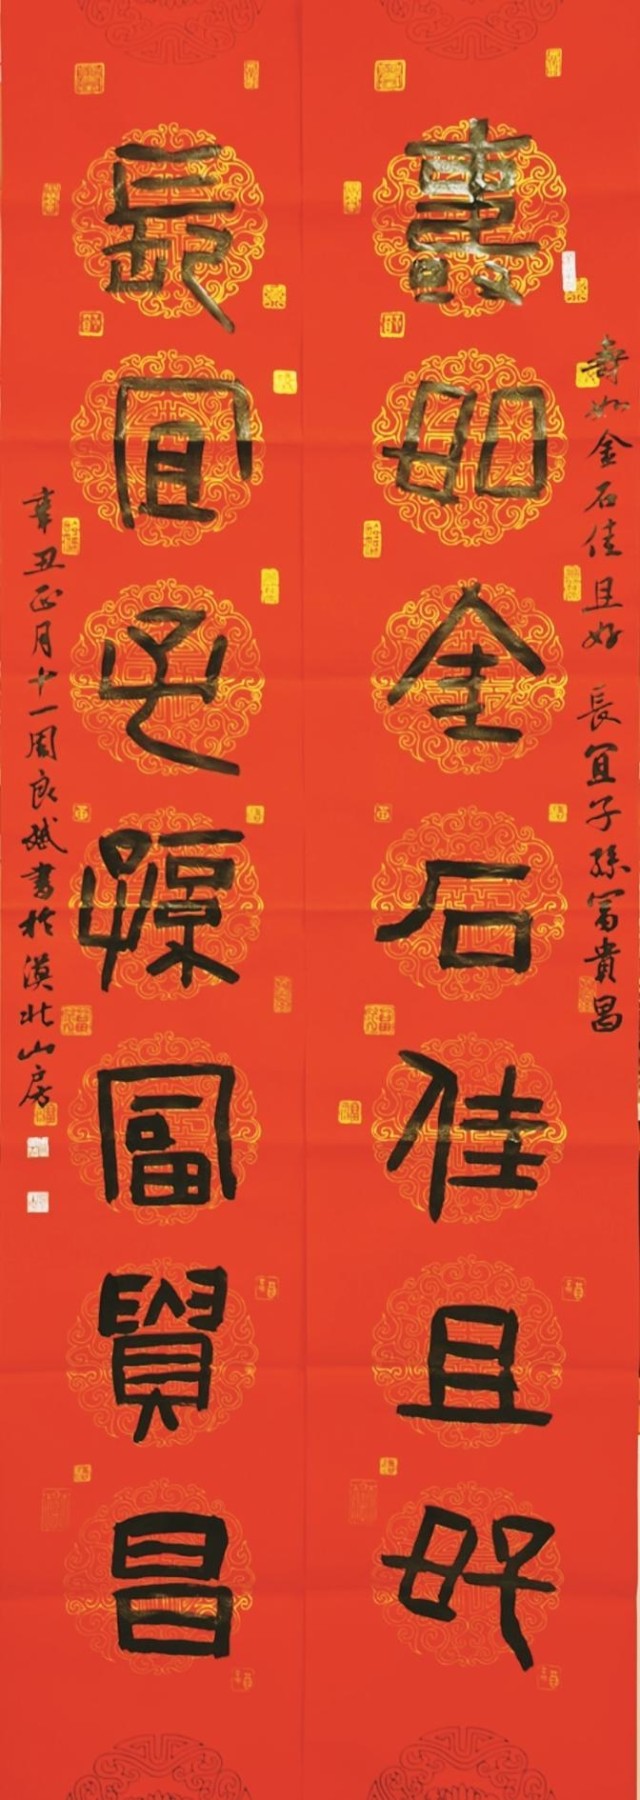 壽如金石佳且好
長宜子孫富貴昌
壽如金石佳且好 長宜子孫富貴昌
辛丑正月十一周良斌書於漠北山房